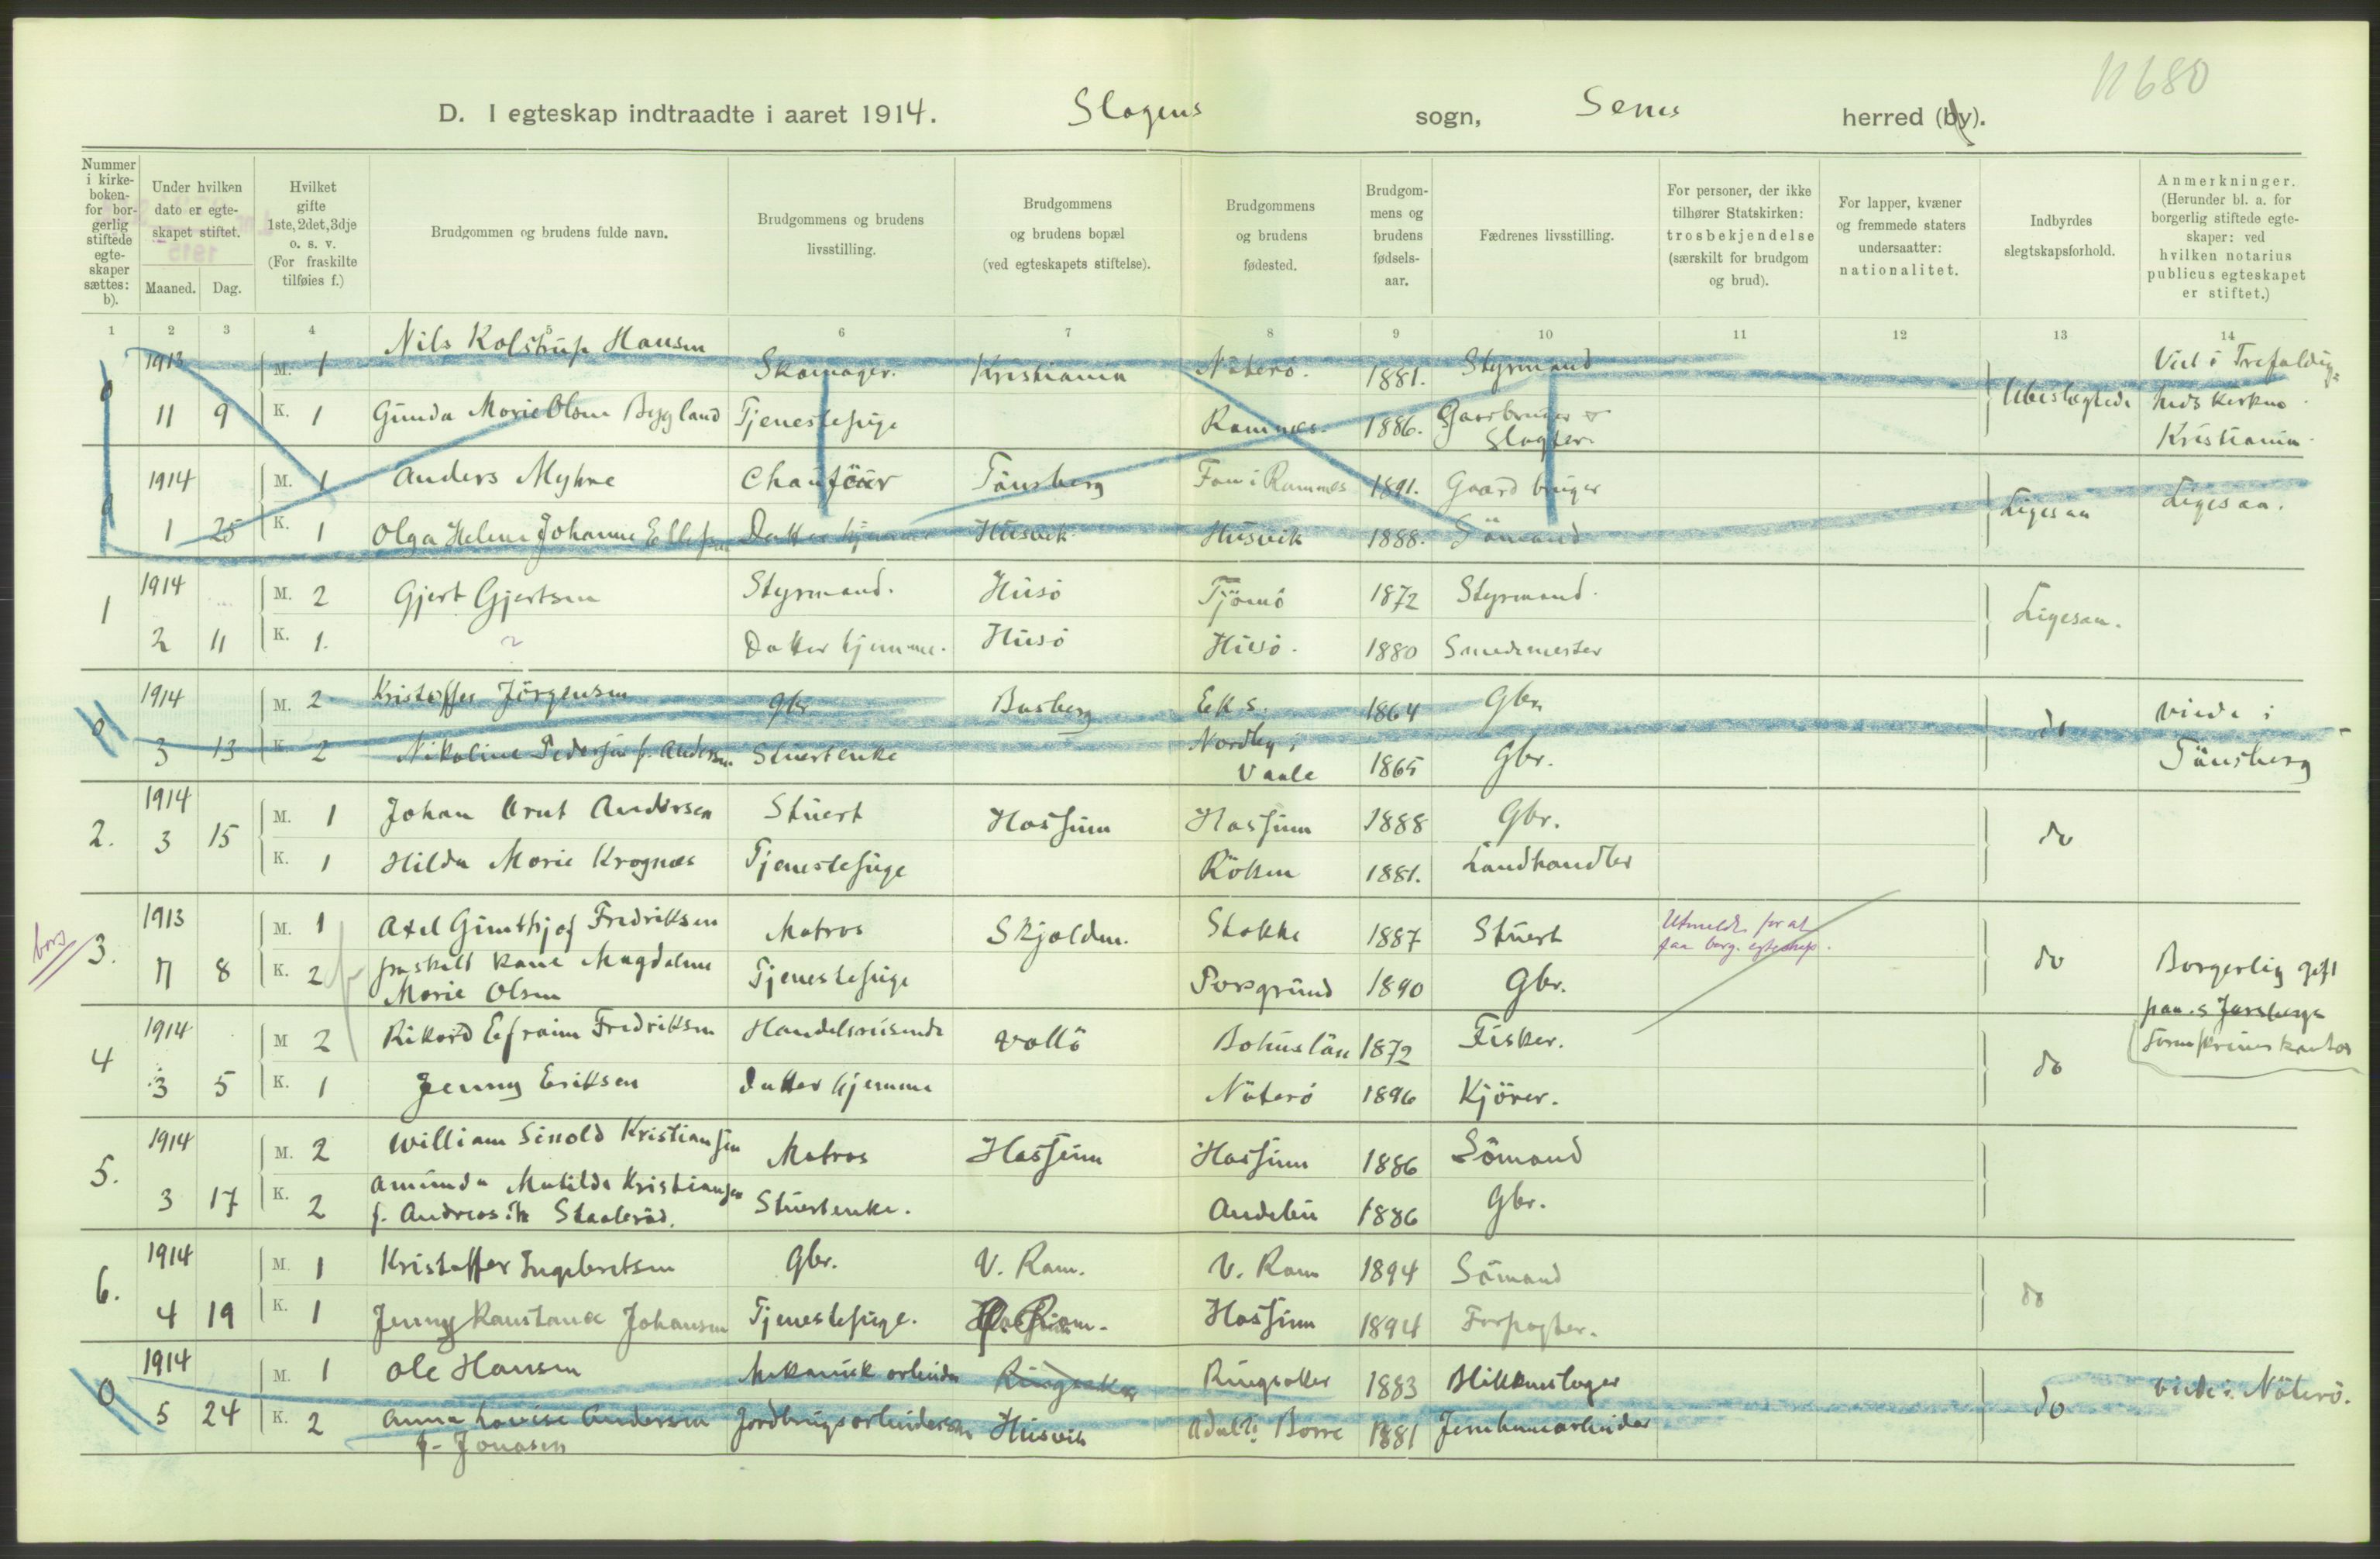 11680
D. I egteskap indtraadte i aaret 1914. Slagens sogn, Sems herred (by).
Nummer i kirke-boken- for bor-gerlig stiftede egte-skaper sættes: b).
Under hvilken dato er egte-skapet stiftet.
Maaned. Dag.
Hvilket gifte 1ste, 2det, 3dje o. s. v. (For fraskilte tilføies f.)
Brudgommen og brudens fulde navn.
Brudgommens og brudens livsstilling.
Brudgommens og brudens bopæl (ved egteskapets stiftelse).
Brudgommens og brudens fødested.
Brudgom-mens og brudens fødsels-aar.
Fædrenes livsstilling.
For personer, der ikke tilhører Statskirken: trosbekjendelse (særskilt for brudgom og brud).
For lapper, kvæner og fremmede staters undersaatter: nationalitet.
Indbyrdes slegtskapsforhold.
Anmerkninger. (Herunder bl. a. for borgerlig stiftede egte-skaper: ved hvilken notarius publicus egteskapet er stiftet.)
1 2 3 4 5 6 7 8 9 10 11 12 13 14
0 1913 M. 1 Nils Kolstrup Hansen Skomager. Kristiania Nøterö. 1881. Styrmand Ubeslegtede Viet i Trefoldig=
11 9 K. 1 Gunda Marie Olsen Bygland Tjenestepige Ramnes. 1886. Gaardbruger & heds kirken
Slagter. Kristiania.
0 1914 M. 1 Anders Myhre Chaufför Tönsberg Fon i Ramnes 1891. Gaardbruger Ligesaa Ligesaa.
1 25 K. 1 Olga Helene Johanne Ellefsen Datter hjemme Husvik Husvik 1888. Sömand
1 1914 M. 2 Gjert Gjertsen Styrmand. Husö Tjömö 1872 Styrmand. Ligesaa.
2 11 K. 1. Datter hjemme. Husö Husö. 1880 Smedmester
0 1914 M. 2 Kristoffer Jörgensen gbr Basberg Eks. 1864 Gbr. do viede i
3 13 K. 2 Nikoline Pedersen f. Andersen Stuertenke Nordby i Vaale 1865 Gbr. Tönsberg
2. 1914 M. 1 Johan Arnt Andersen Stuert Hassum Hassum 1888 Gbr. do
3 15 K. 1 Hilda Marie Krognæs Tjenestepige Röken 1881. Landhandler
borg 3. 1913 M. 1 Axel Gunthjof Fredriksen Matros Skjolden. Stokke 1887 Stuert Utmeldt for at
faa borg. egteskap. do
11 8 K. 2 fraskilt kone Magdalene Tjenestepige Porsgrund 1890 Gbr. Borgerlig gift
Marie Olsen paa s Jarsbergs
4 1914 M 2 Rikard Efraim Fredriksen Handelsreisende Vallö Bohuslän 1872 Fisker. do
3 5 K. 1 Jenny Eriksen Datter hjemme Nöterö 1896 Kjörer.
5. 1914 M. 2 William Sinold Kristiansen Matros Hassum Hassum 1886 Sömand
3 17 K. 2 Amunda Matilde Kristiansen Stuertenke. Andebu 1886 Gbr.
6. 1914 M. 1 Kristoffer Ingebretsen Gbr. V. Ram. V. Ram 1894 Sömand do
4 19 K. 1 Jenny Konstanse Johansen Tjenestepige. Hassum 1894 Forpagter.
0 1914 M. 1 Ole Hansen Mekanisk arbeider Ringsaker Ringsaker 1883 Blikkenslager do viede i Nöterö.
5 24 K. 2 Anna Lovise Andersen Jordbrugsarbeiderske Husvik Adal i Borre 1881 Jernbanearbeider
f. Jonasen